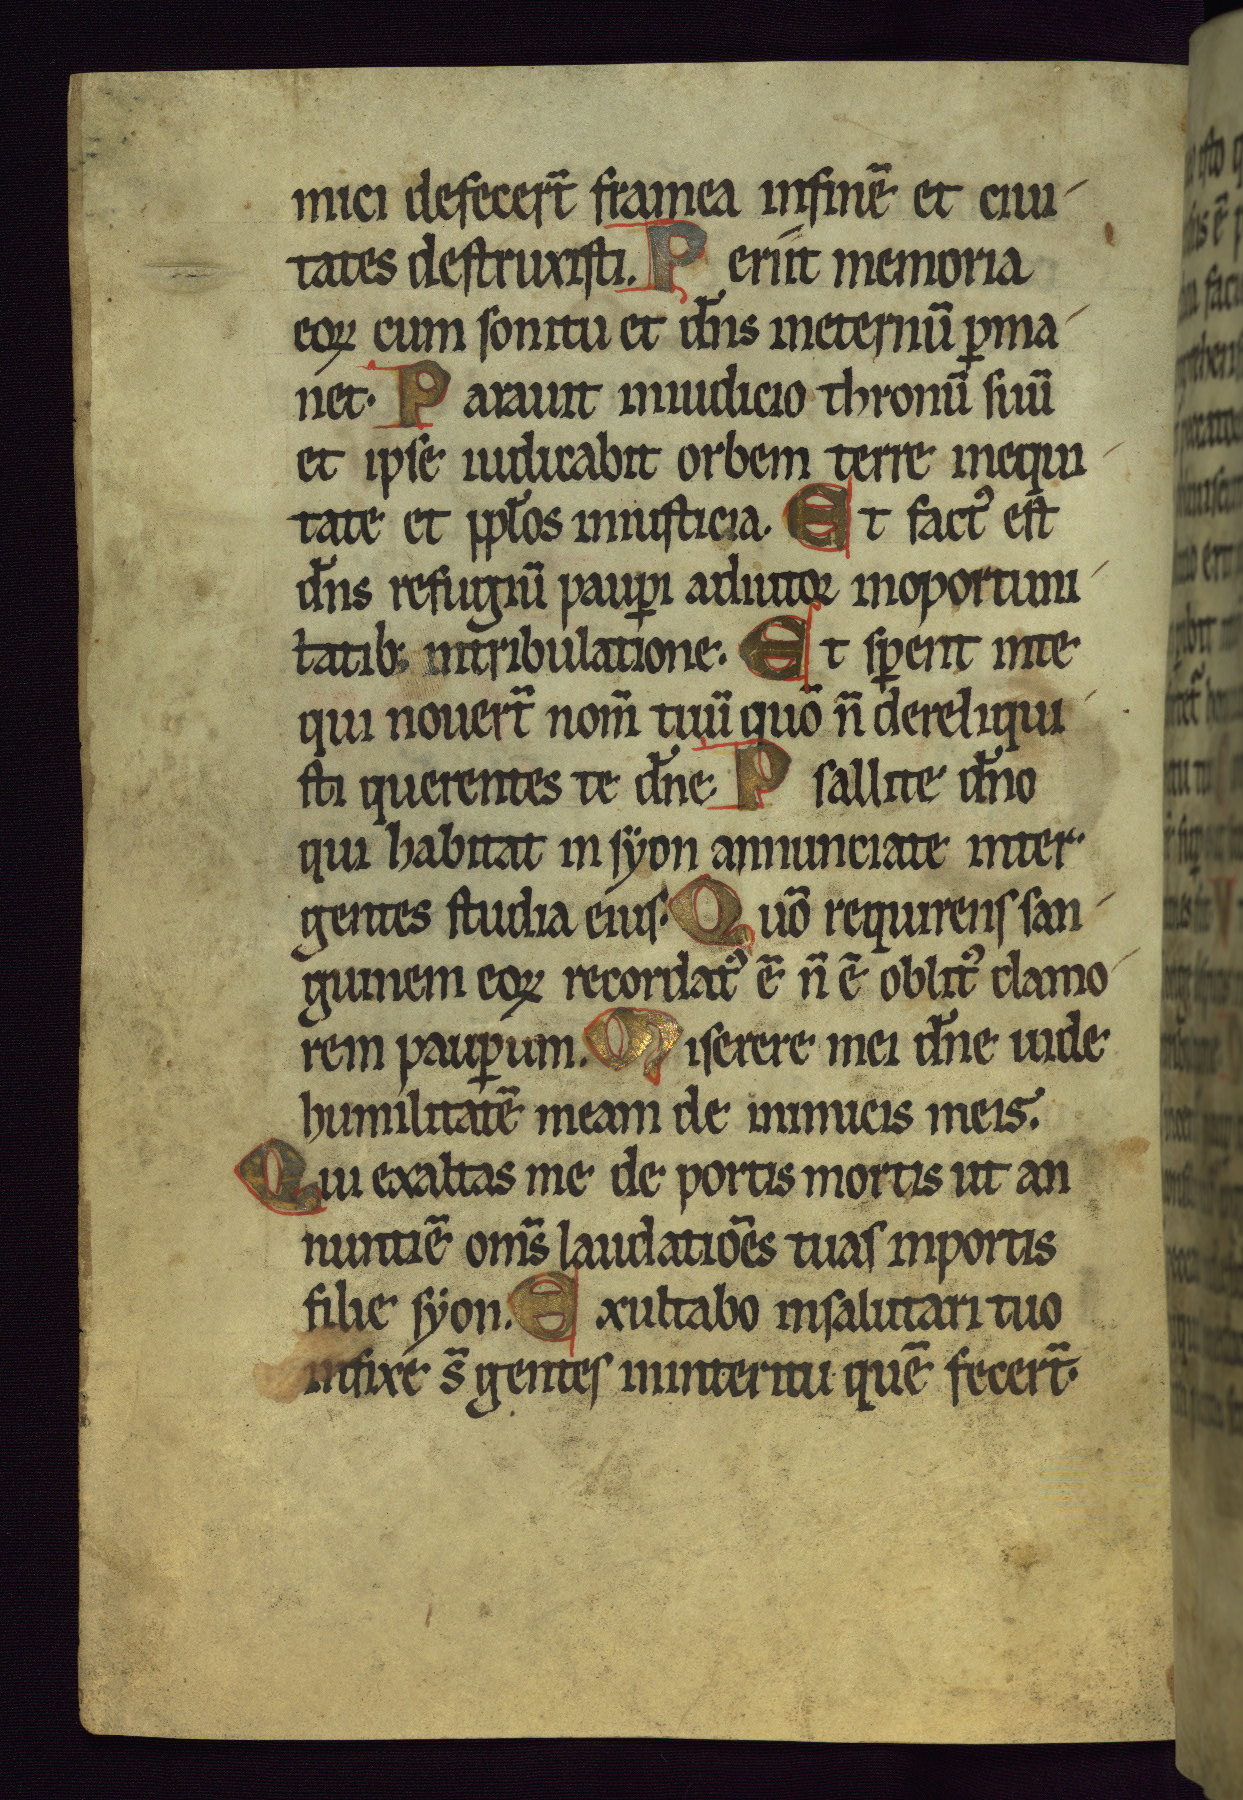 mici defecer̄t framea infinē et ciui-
tates destruxisti. Periit memoria
eoꝝ cum sonitu et dn̄s ineternū ꝑma-
net. Parauit iniudicio thronū suū
et ipse iudicabit orbem terre inequi-
tate et ppl̄os iniusticia. Et factꝰ est
dn̄s refugiū pauꝑi adiutoꝛ inoportuni-
tatib; intribulatione. Et sꝑent inte
qui nouer̄t nom̄ tuū quō n̄ dereliqui-
sti querentes te dn̄e. Psallite dn̄o
qui habitat in sẏon annunciate inter
gentes studia eius. Quō requirens san-
guinem eoꝝ recordatꝰ ē n̄ ē oblitꝰ clamo-
rem pauꝑum. Miserere mei dn̄e uide
humilitatē meam de inimicis meis.
Qui exaltas me de portis mortis ut an
nuntiē om̄s laudatiōes tuas inportis
filie sẏon. Exultabo insalutari tuo
infixe s̄ gentes ininteritu quē fecer̄t.